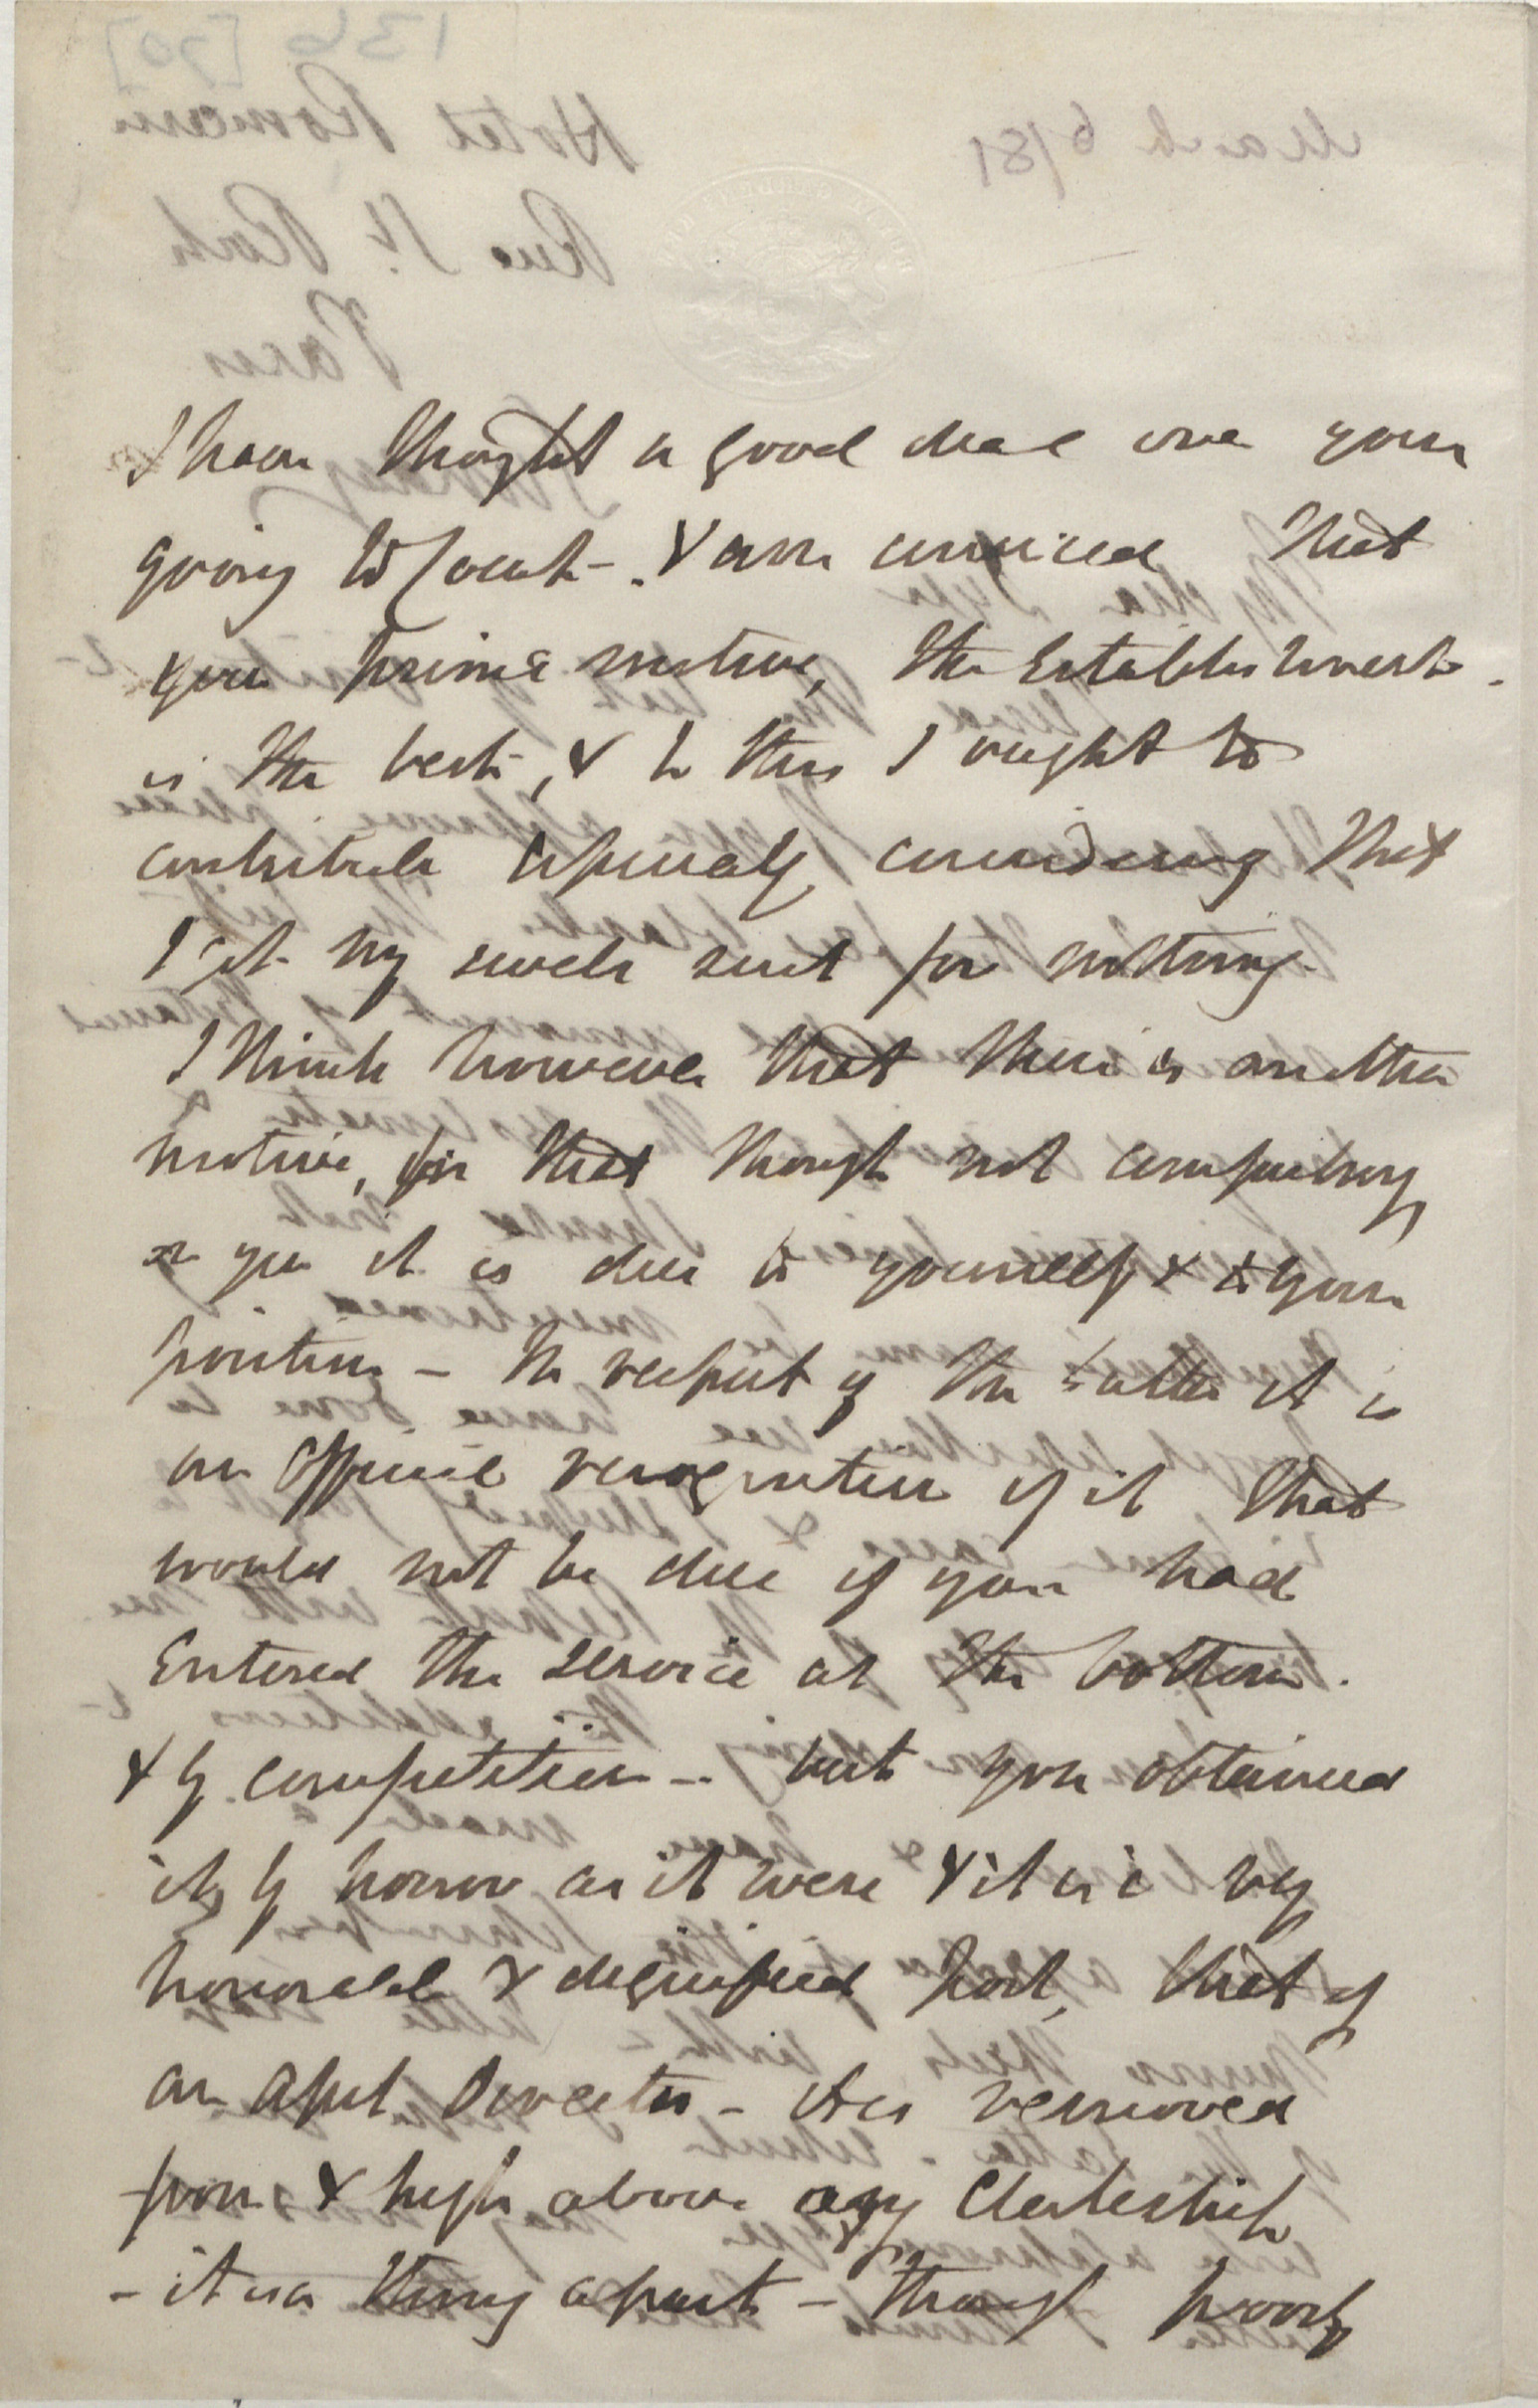 I have thought a good deal over your
going to Court - . & am convinced that
your prime motive, the Establishment -
is the best, & to this I ought to
contribute especially considering that
I get my swords suit for nothing.
I think however that there is another
motive, for that though not compulsory
on you it is due to yourself & to your
position - In respect of the latter it is
an official recognition of it that
would not be due if you had
Entered the service at the bottom .
& by competition - but you obtained
it, by honor as it were & it is a very
honorable & dignified post, that of
an Asst Director - it is removed
from & high above any Clerkship
- it is a thing apart - though poorly